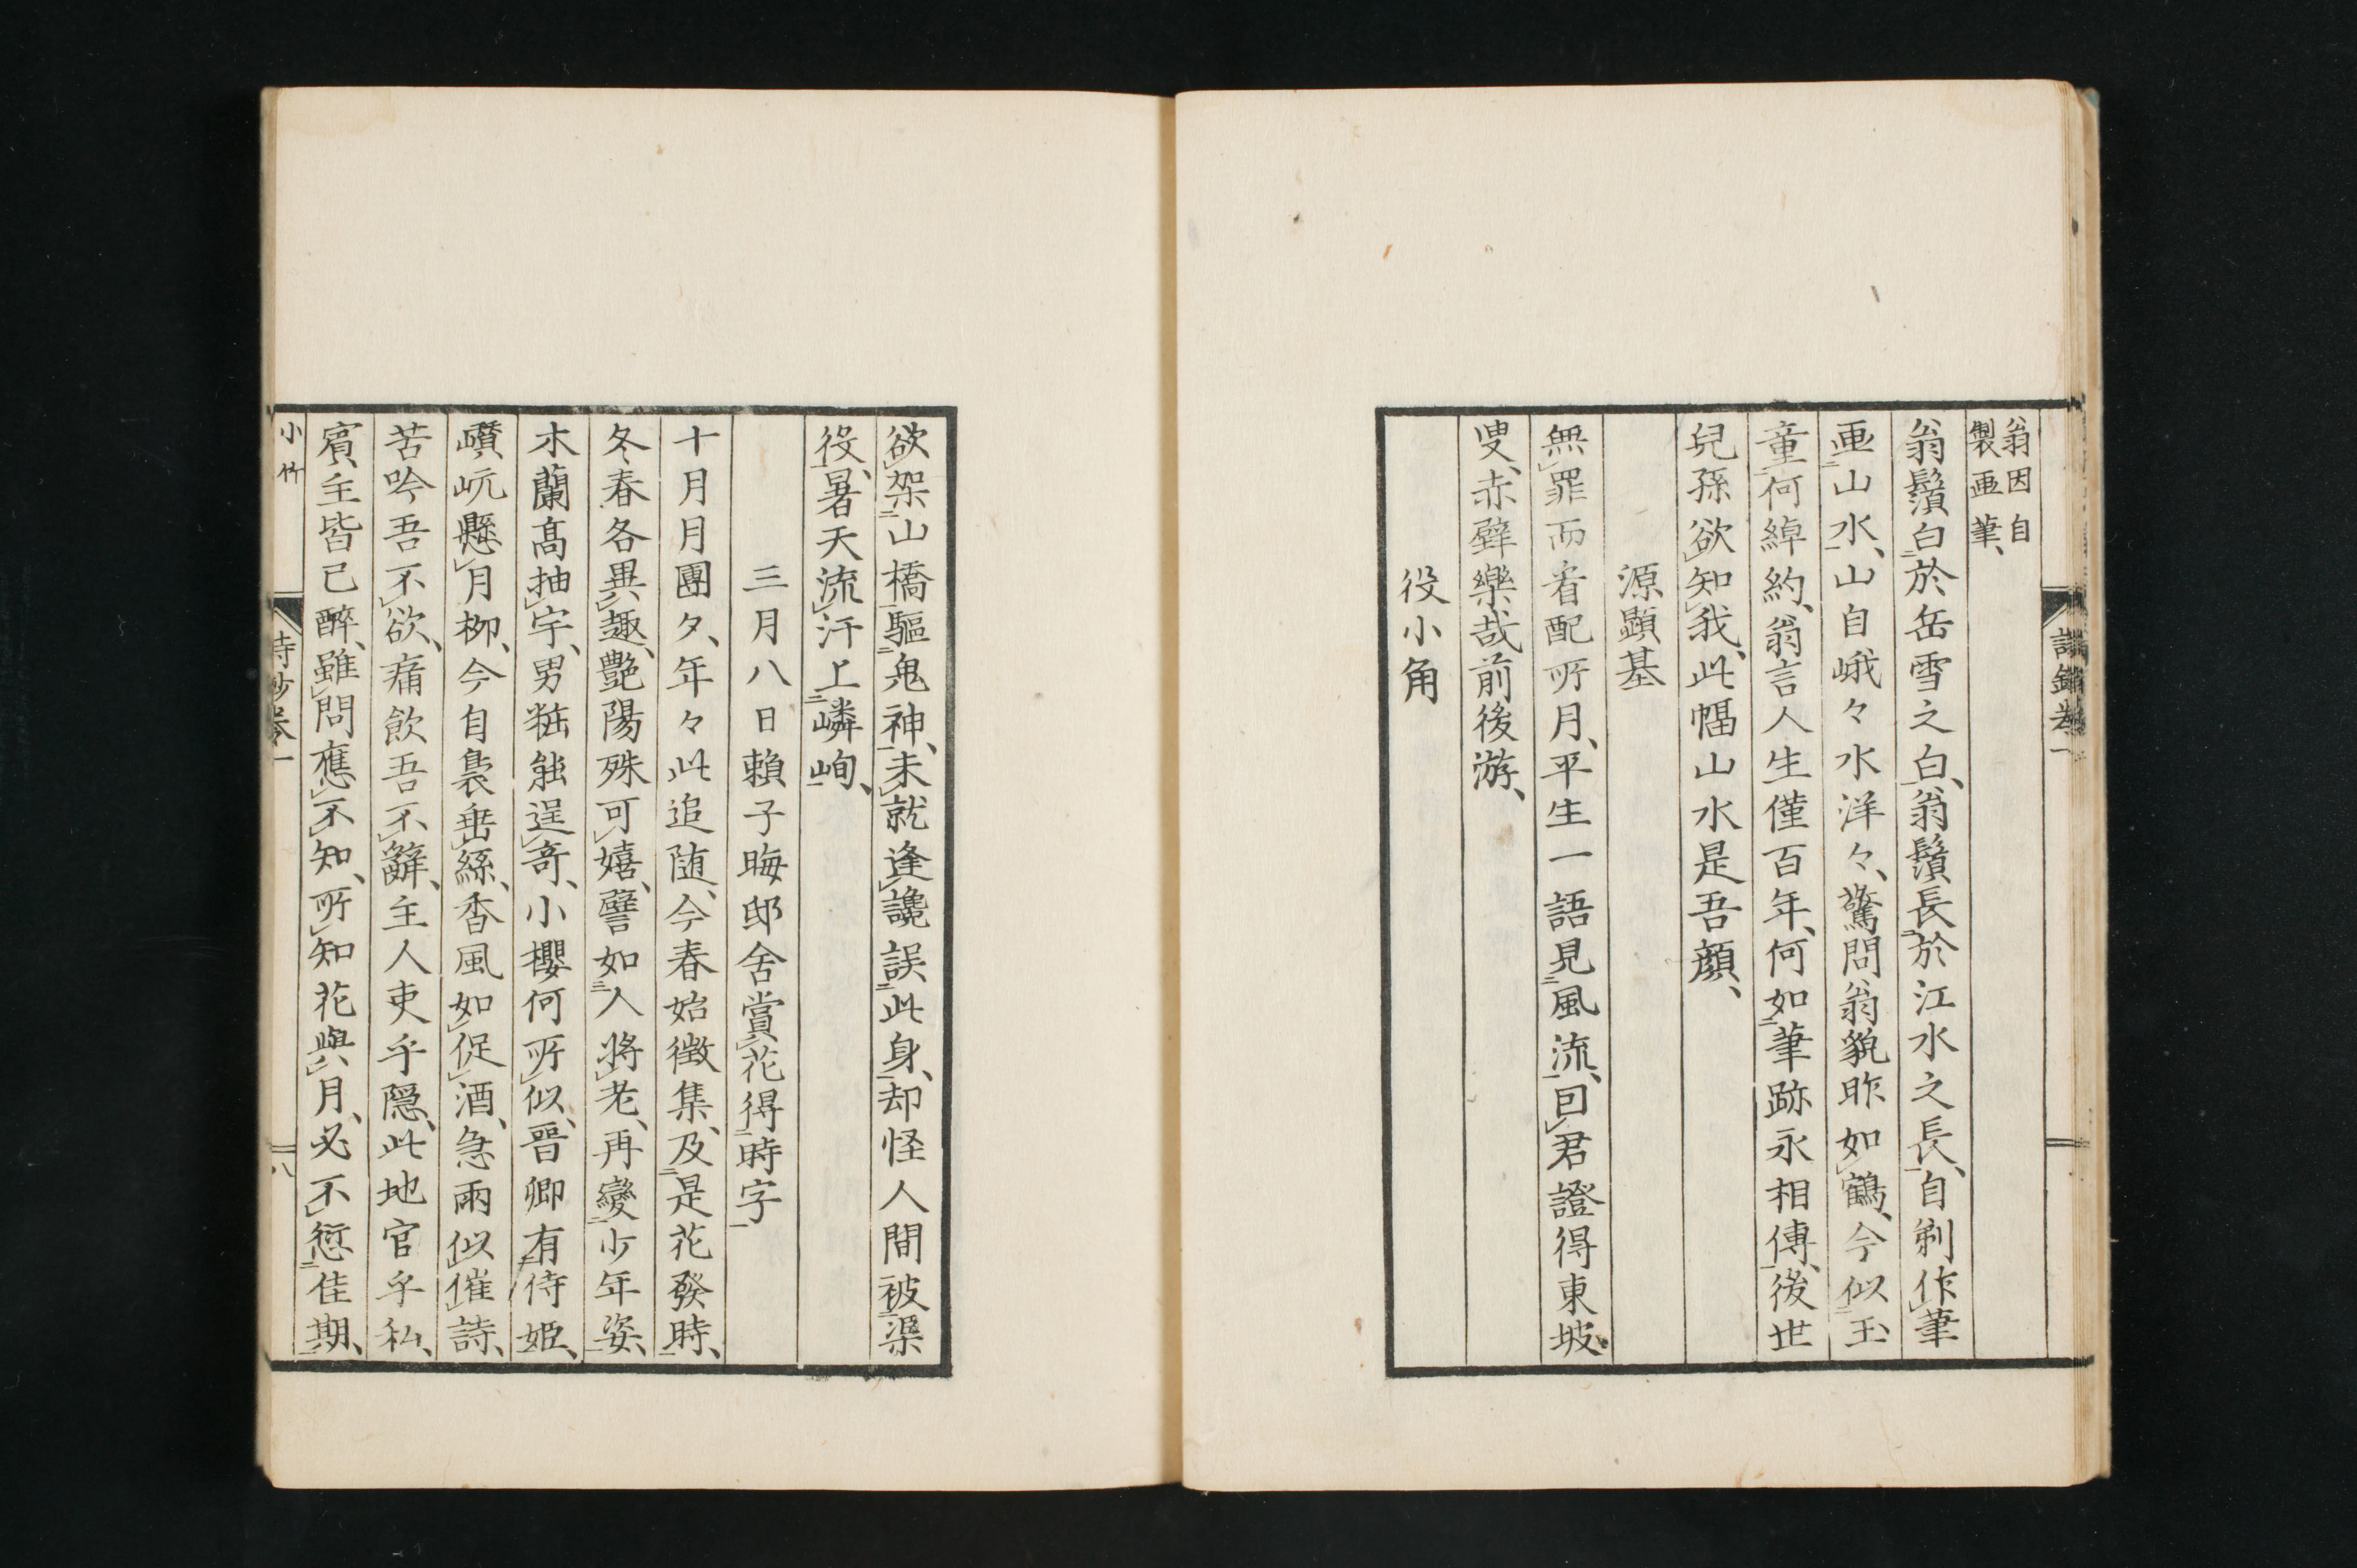 翁因自
製画筆、
翁鬚白於岳雪之白、翁鬚長於江水之長、自剃作筆
画山水、山自峨々水洋々、驚問翁貌昨如鶴、今似玉
童何綽約、翁言人生僅百年、何如筆跡永相傳、後世
兒孫欲知我、此幅山水是吾顔、
源顕基
無罪而看配所月、平生一語見風流、回君證得東坡
叟、赤壁樂哉前後游、
役小角
欲架山橋驅鬼神、未就逢讒誤此身、却怪人間被渠
役、暑天流汗上嶙峋、
三月八日賴子晦邸舍賞花得時字
十月月團夕、年々此追随、今春始徴集、及是花發時、
冬春各異趣、艷陽殊可嬉、譬如人將老、再變少年姿、
木蘭高抽宇、男粧能逞奇、小櫻何所似、晉卿有侍姫、
巑岏懸月栁、今自裊垂絲、香風如促酒、急雨似催詩、
苦吟吾不欲、痛飲吾不辭、主人吏乎隠、此地官乎私、
賓主皆已醉、雖問應不知、所知花與月、必不愆佳期、
小竹
詩鈔卷一
八